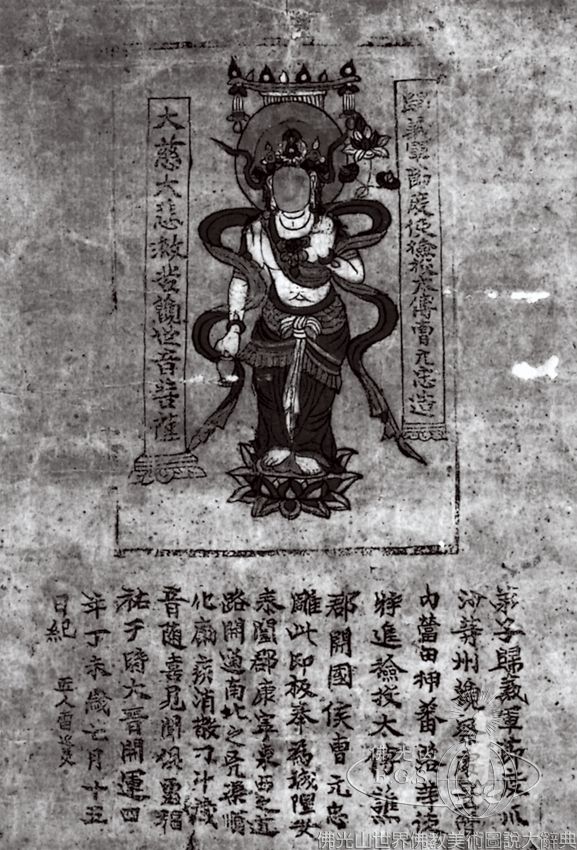 歸義軍節度使檢校太傅曹元忠造
大慈大悲救苦觀世音菩薩
弟子歸義軍節度瓜
沙等州觀察處置管
內營田押蕃落等使
特進檢校太傅譙
郡開國侯曹元忠
雕此印板奉為城隍安
泰闔郡康寧東西之道
路開通南北之兇渠順
化癘疾消散刁斗藏
音隨喜見聞俱霑福
祐于時大晉開運四
年丁未歲七月十五
日紀 匠人雷延美
佛光
FGS
佛光山世界佛教美術圖說大辭典